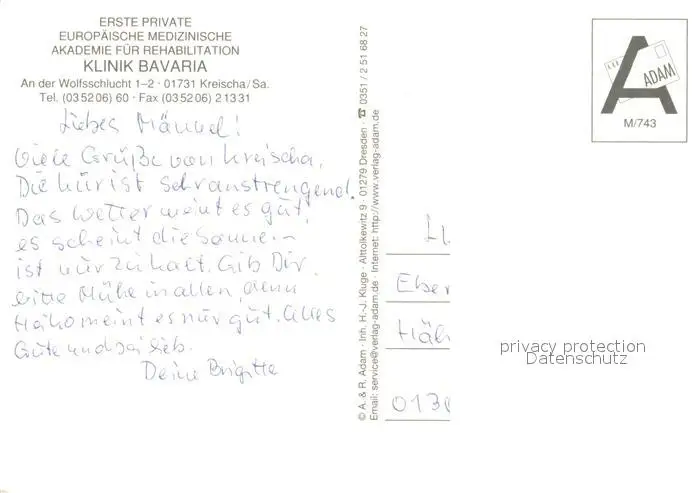 ERSTE PRIVATE
EUROPÄISCHE MEDIZINISCHE
AKADEMIE FÜR REHABILITATION
KLINIK BAVARIA
An der Wolfsschlucht 1–2 · 01731 Kreischa/Sa.
Tel. (03 52 06) 60 · Fax (03 52 06) 2 13 31
Liebes Männel!
Viele Grüße von Kreischa,
Die Kur ist sehr anstrengend.
Das Wetter meint es gut,
es scheint die Sonne
ist nur zu kalt. Gib Dir
bitte Mühe in allen, denn
Heiko meint es nur gut. Alles
Gute und sei lieb.
Deine Brigitte
© A. & R. Adam · Inh. H.-J. Kluge · Alttolkewitz 9 · 01279 Dresden · ☎ 0351 / 2 51 68 27
Email: service@verlag-adam.de · Internet: http://www.verlag-adam.de
ADAM
M/743
Eber
Häh
013
privacy protection
Datenschutz